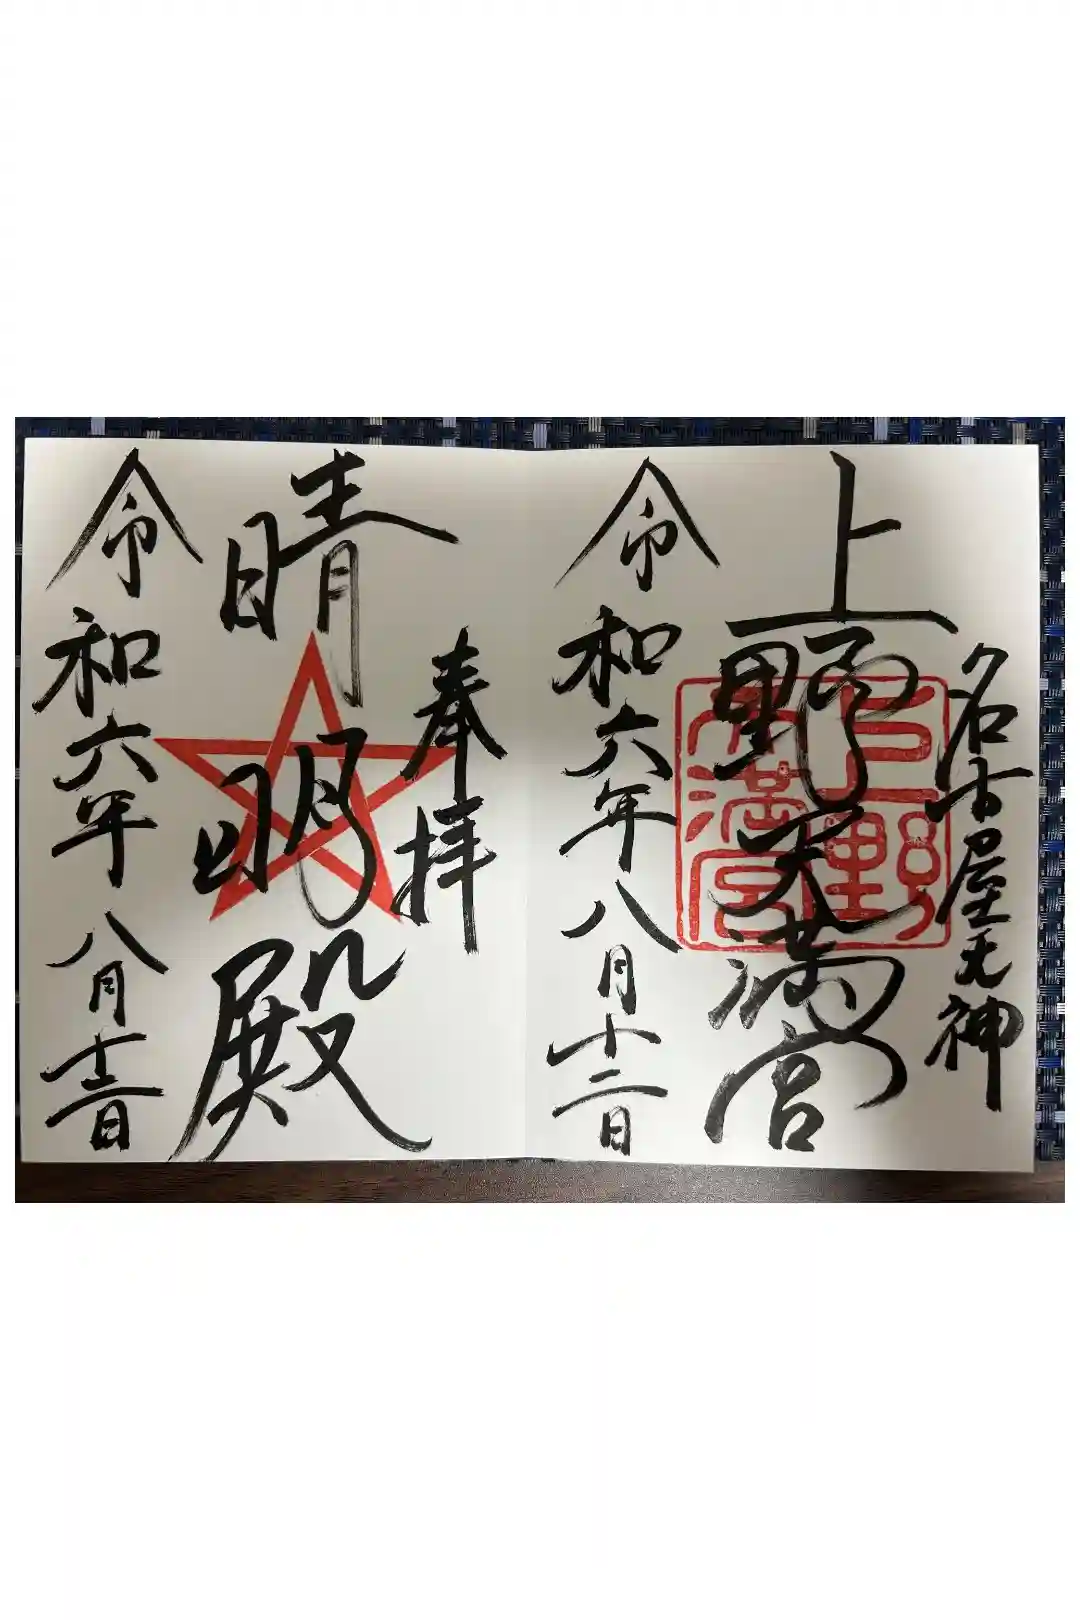 名古屋天神
上野天満宮
令和六年八月十二日
上野
天満宮
奉拝
晴明殿
令和六年八月十二日